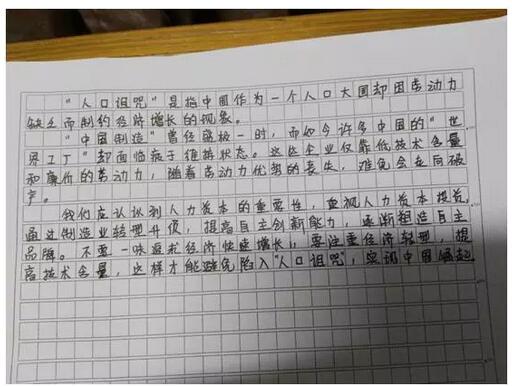 “人口诅咒”是指中国作为一个人口大国却因劳动力
缺乏而制约经济增长的现象。
“中国制造”曾经盛极一时，而如今许多中国的“世
界工厂”却面临疲于维持状态。这些企业仅靠低技术含量
和廉价的劳动力，随着劳动力优势的丧失，难免会走向破
产。
我们应认识到人力资本的重要性，重视人力资本投资，
通过制造业转型升级，提高自主创新能力，逐渐塑造自主
品牌。不要一味追求经济快速增长，要注重经济转型，提
高技术含量，这样才能避免陷入“人口诅咒”，实现中国崛起。